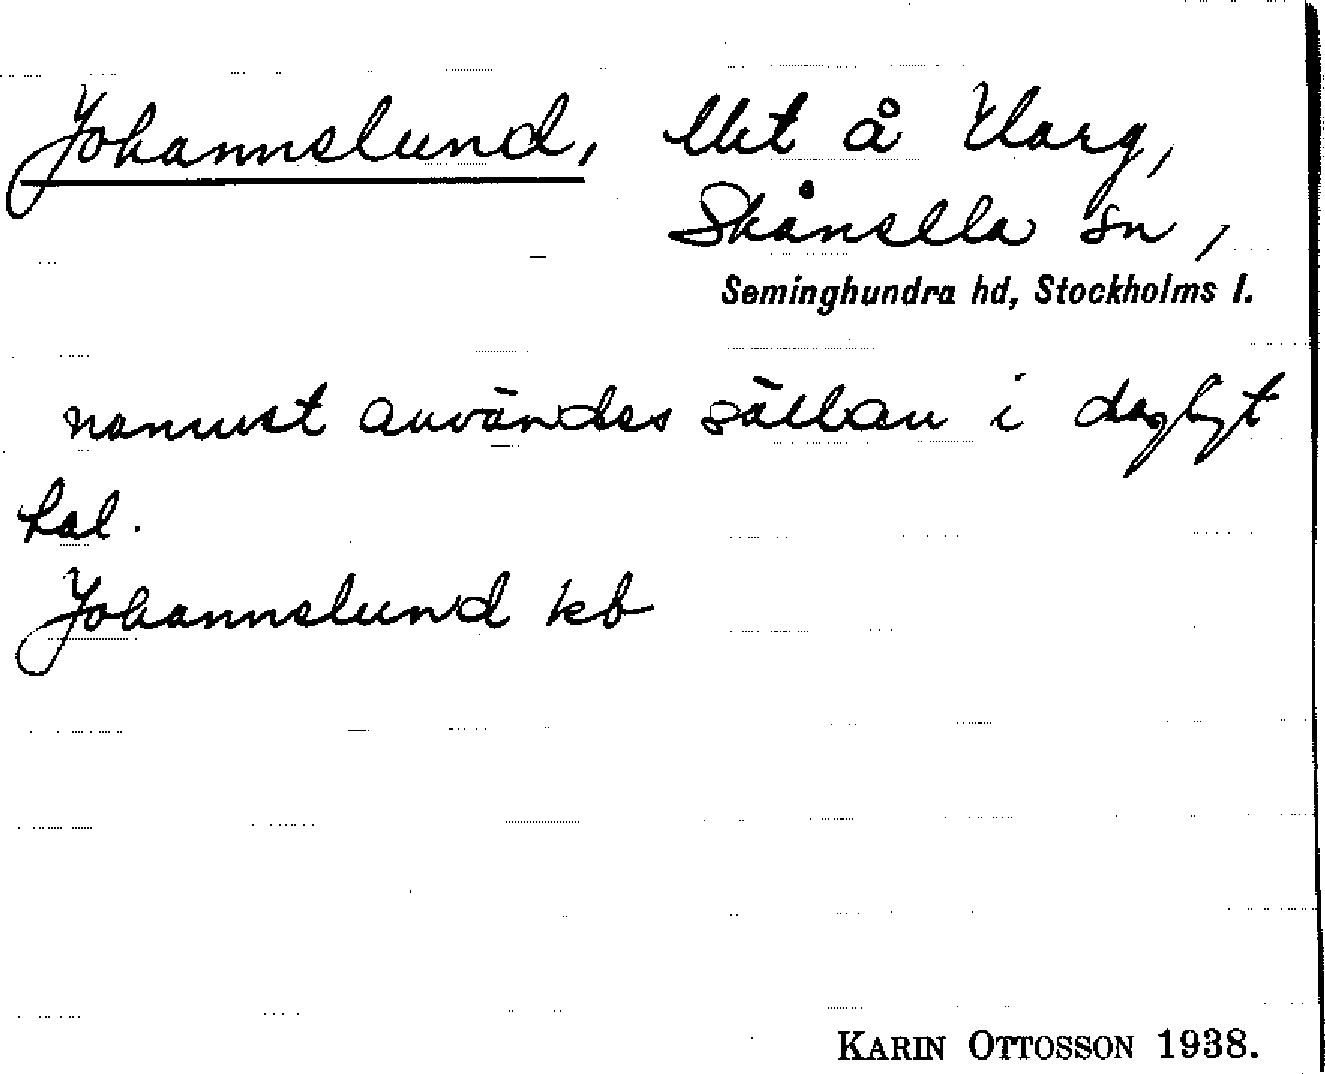 Johannslund, lht å Harg,
Skånella sn,
Seminghundra hd, Stockholms l.
namnet användes sällan i dagligt
tal.
Johannslund kb
KARIN OTTOSSON 1938.